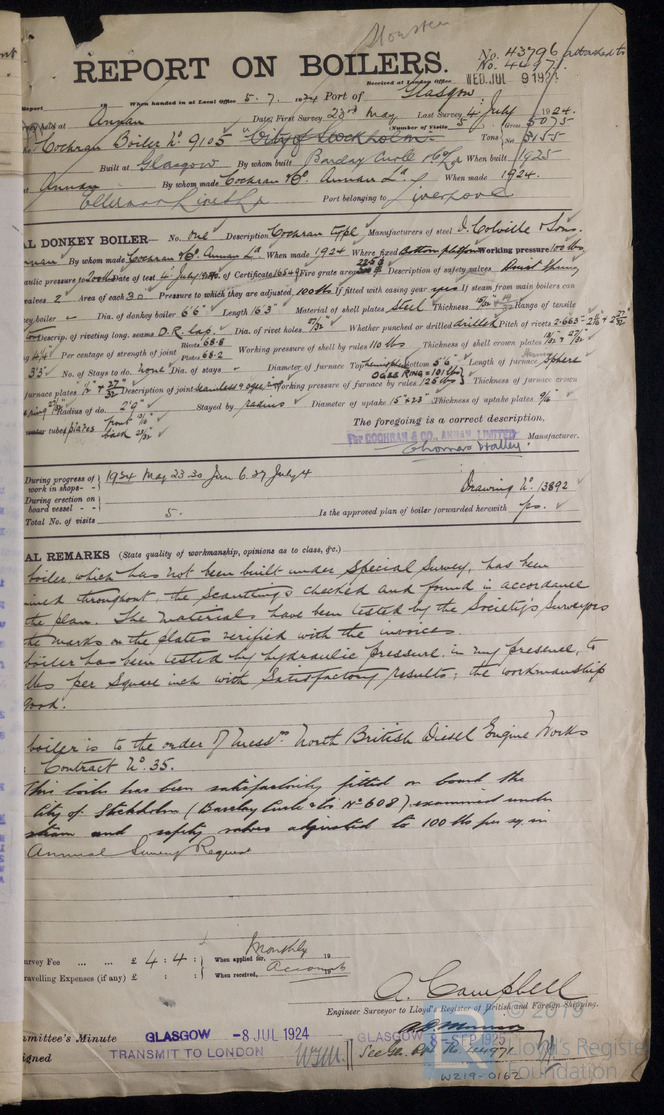 No. 43796 attached to
No. 44971
REPORT ON BOILERS.
Received at London Office WED. JUL 9 192
Report When handed in at Local Office 5. 7. 1924 Port of Glasgow
held at Annan Date, First Survey 23rd May Last Survey 4 July 1924.
(Number of Visits 5) Gross 5075
Cochran Boiler No. 9105 "City of Stockholm" Tons Net 3155
Built at Glasgow By whom built Barclay Curle & Co Ld When built 1925
at Annan By whom made Cochran & Co. Annan Ld. When made 1924.
Ellerman Lines Ld Port belonging to Liverpool
AL DONKEY BOILER— No. One Description Cochran type Manufacturers of steel D. Colville & Sons.
Annan By whom made Cochran & Co. Annan Ld. When made 1924 Where fixed Bottom platform Working pressure 100 lbs.
aulic pressure to 200 lbs Date of test 4 July 1924 of Certificate 16549 Fire grate area Description of safety valves Direct Spring
valves 2 Area of each Pressure to which they are adjusted, 100 lbs If fitted with easing gear yes If steam from main boilers can
key boiler Dia. of donkey boiler 6'6" Length 16'3" Material of shell plates Steel Thickness Range of tensile
Descrip. of riveting long. seams D.R. Lap. Dia. of rivet holes Whether punched or drilled drilled Pitch of rivets 2.663
4 1/4 Per centage of strength of joint Rivets 68.8 Plates 68.2 Working pressure of shell by rules 110 lbs Thickness of shell crown plates
3'3" No. of Stays to do. none Dia. of stays Diameter of furnace Top hemisphere Bottom 5'6" Length of furnace Hemisphere
OGEE RING = 101 lbs
furnace plates Description of joint seamless & ogee ring Working pressure of furnace by rules 126 lbs Thickness of furnace crown
Radius of do. 2'9" Stayed by radius Diameter of uptake 15" Thickness of uptake plates 9/16
water tubes plates front back
The foregoing is a correct description,
For COCHRAN & CO., ANNAN, LIMITED
Manufacturer.
During progress of work in shops - - 1924 May 23.30 Jun 6.27 July 4
During erection on board vessel - - Drawing No. 13892
Total No. of visits 5. Is the approved plan of boiler forwarded herewith yes.
AL REMARKS (State quality of workmanship, opinions as to class, &c.)
boiler, which has not been built under Special Survey, has been
throughout, the scantlings checked and found in accordance
the plan. The materials have been tested by the Society's Surveyors
the marks on the plates verified with the invoices.
boiler has been tested by hydraulic pressure, in my presence, to
lbs per square inch with satisfactory results; the workmanship
good.
boiler is to the order of Messrs North British Diesel Engine Works
Contract No. 35.
This boiler has been satisfactorily fitted on board the
City of Stockholm (Barclay Curle & Co No 608) examined under
steam and safety valves adjusted to 100 lbs per sq. in
Annual Survey Request
urvey Fee ... ... £ 4 : 4 : When applied for, Monthly 19
ravelling Expenses (if any) £ : : When received, Account 19
A. Campbell
Engineer Surveyor to Lloyd's Register of British and Foreign Shipping.
© 2019
mmittee's Minute GLASGOW -8 JUL 1924 GLASGOW 8 - SEP 1925
signed TRANSMIT TO LONDON See Glw. Rpt. No. 44971
Lloyd's Register
Foundation
W219-0162